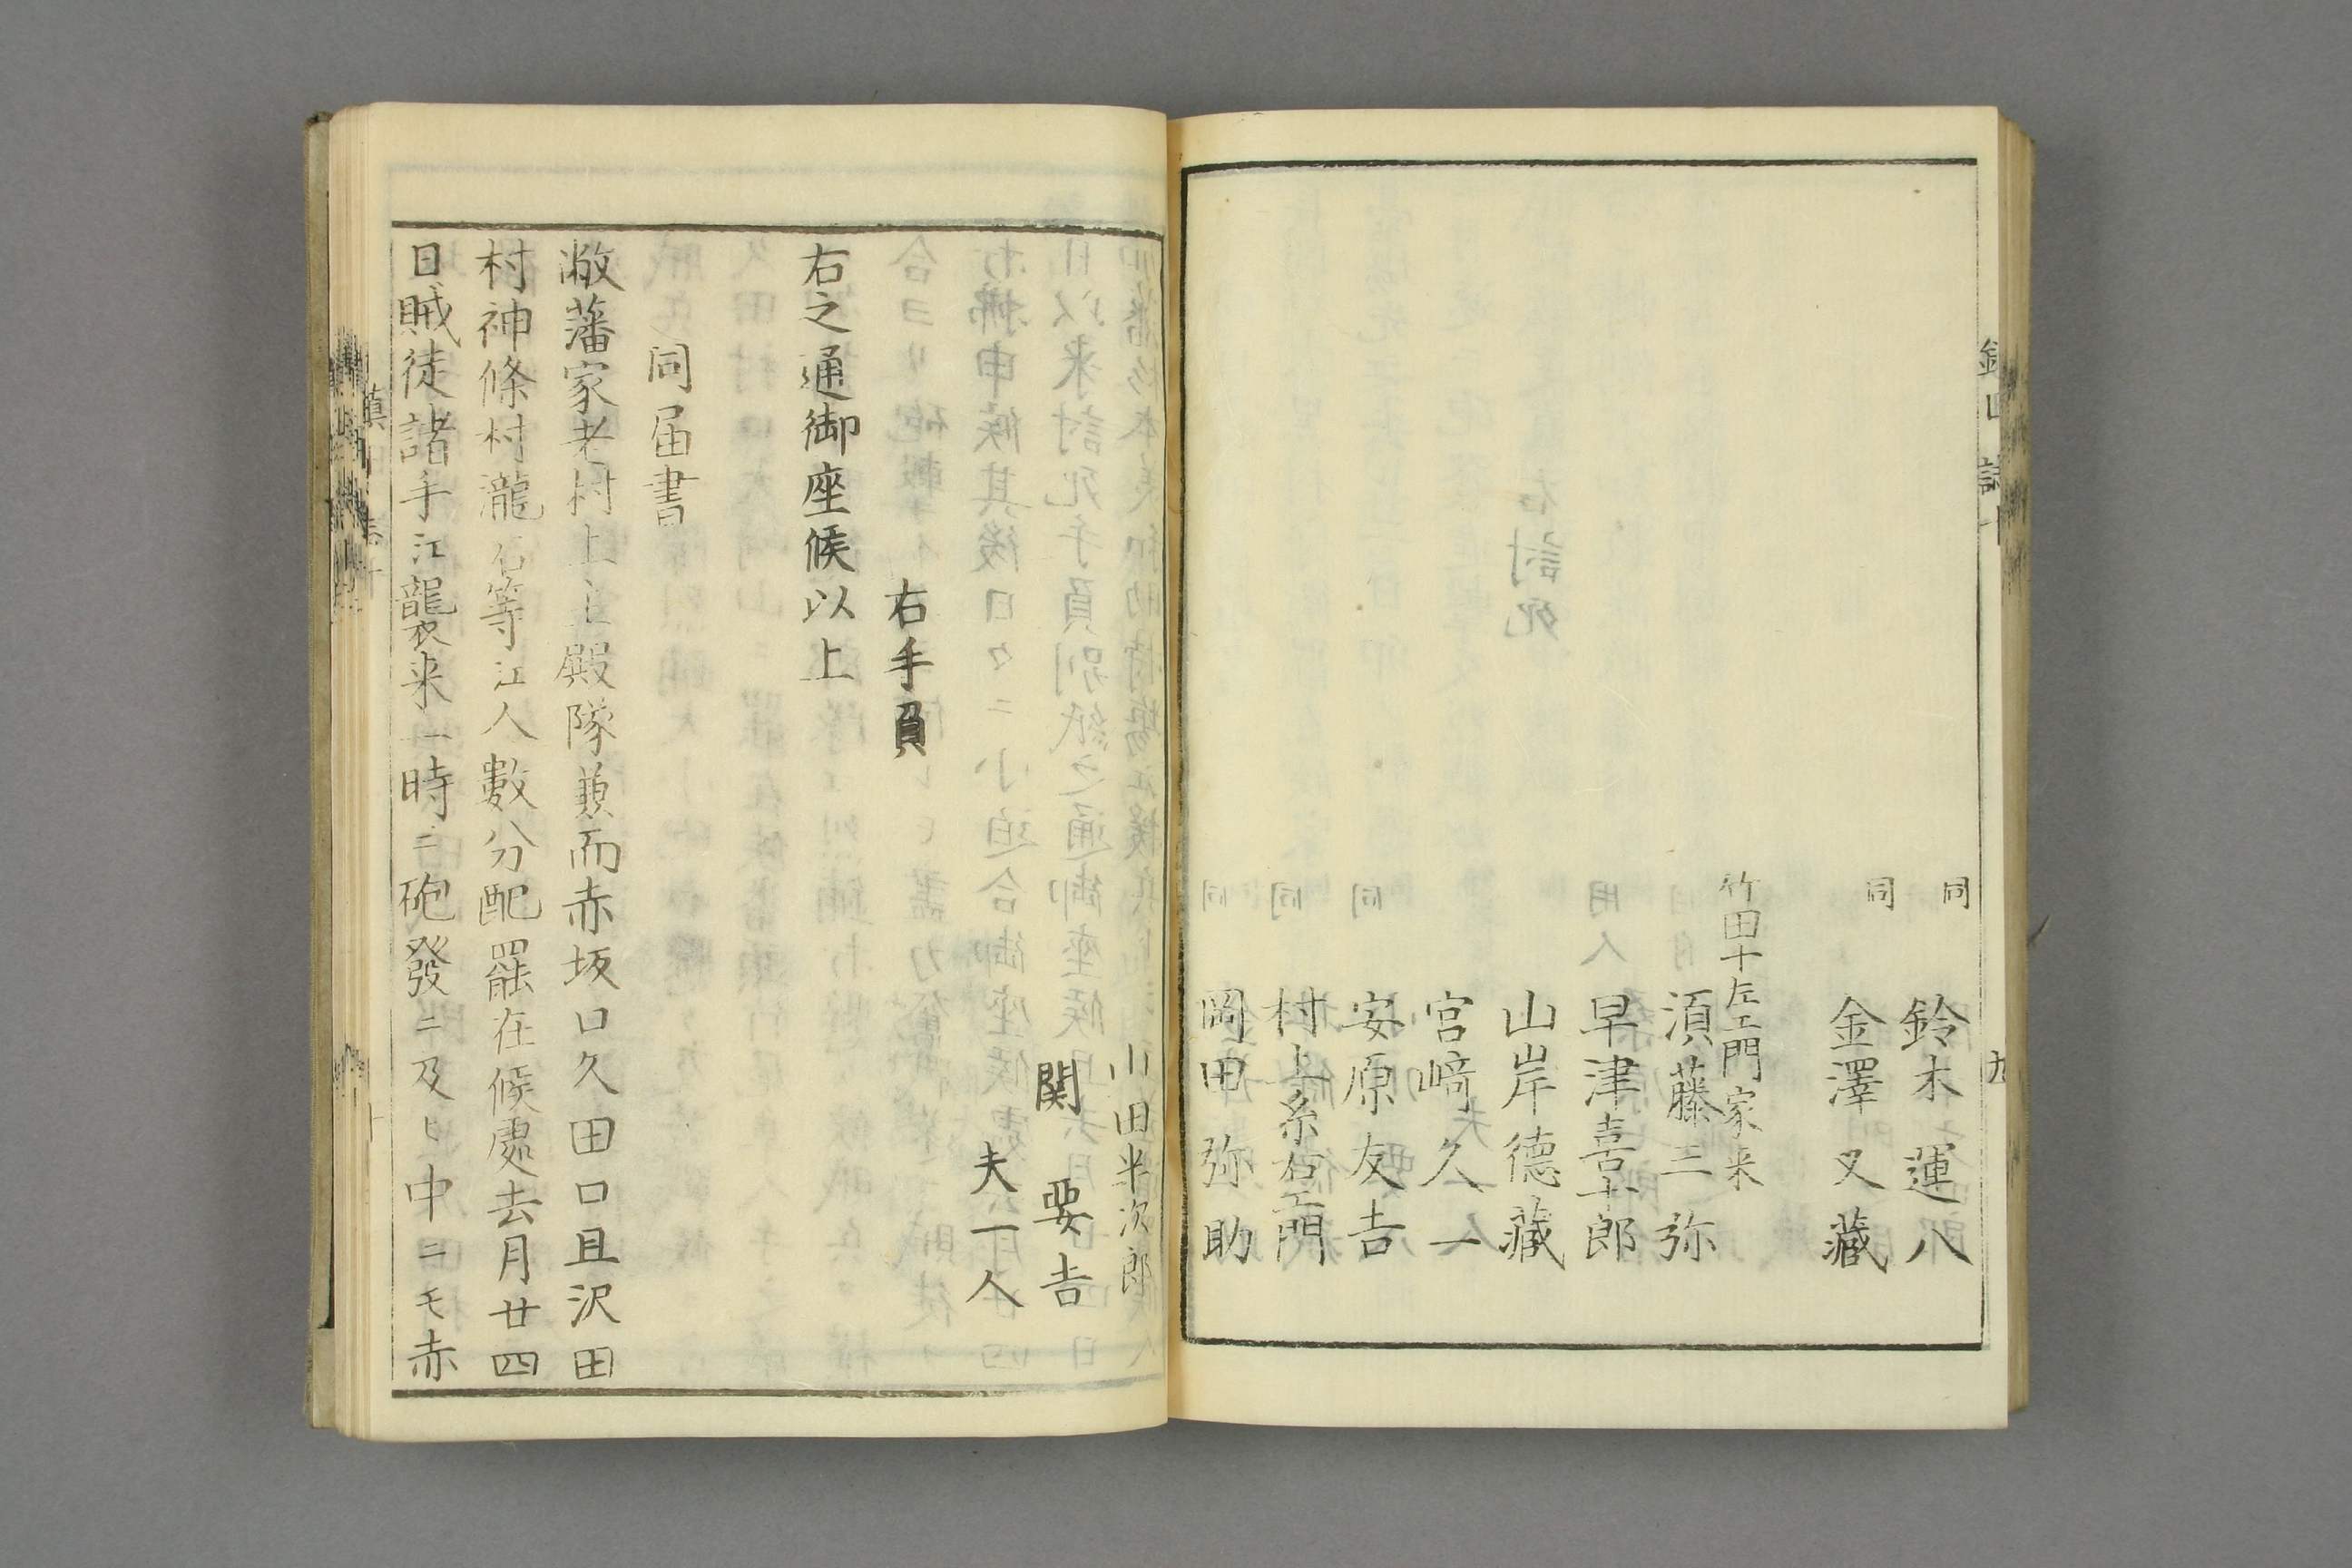 同 鈴木運八
同 金澤又藏
竹田十左エ門家来
須藤三弥
早津喜十郎
山岸德藏
宮﨑久一
安原友吉
村上糸右エ門
岡田弥助
九
小田半次郎
関要吉
夫一人
右手負
右之通御座候以上
同届書
敝藩家老村上主殿隊兼而赤坂口久田口且沢田
村神條村瀧谷等江人數分配罷在候處去月廿四
日賊徒諸手江襲来一時ニ砲發ニ及ヒ中ニモ赤